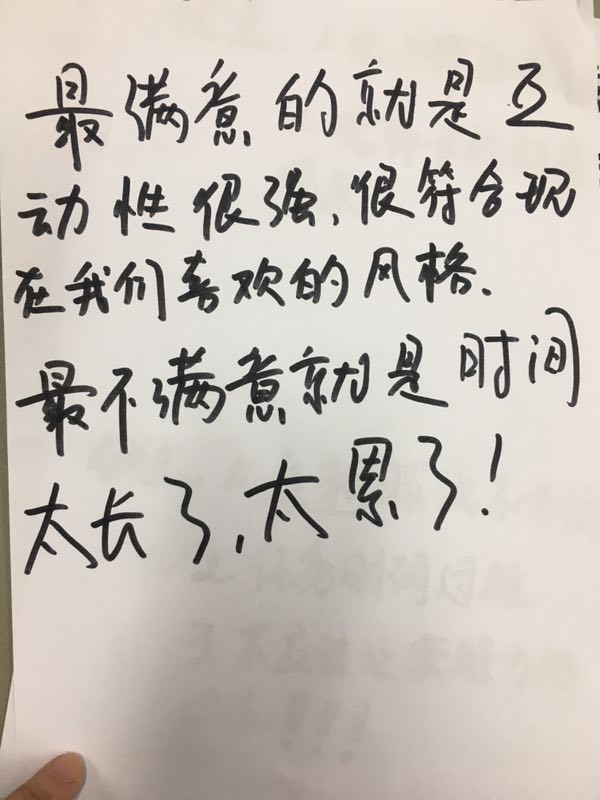 最满意的就是互
动性很强、很符合现
在我们喜欢的风格、
最不满意就是时间
太长了,太累了!